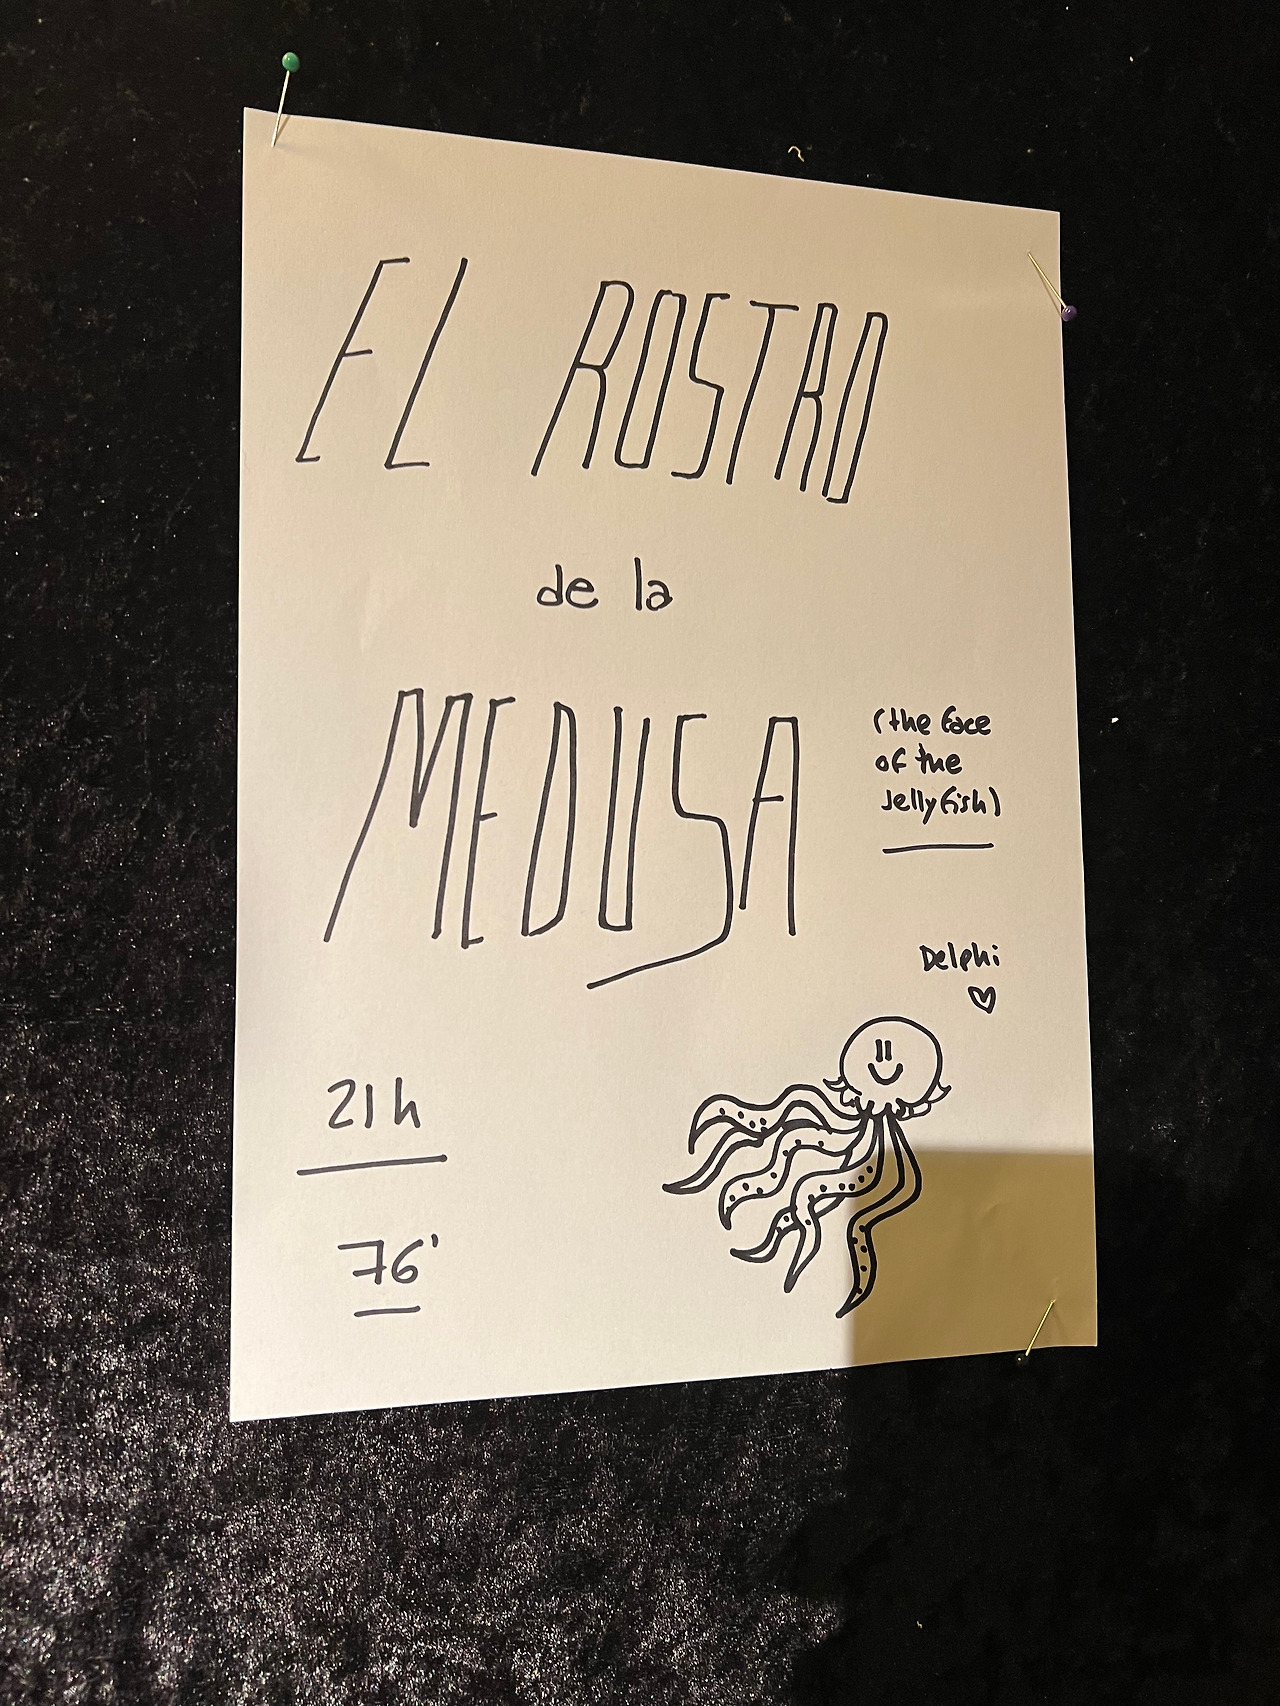 EL ROSTRO
de la
MEDUSA
(the face
of the
Jellyfish)
Delphi
♡
21h
76'